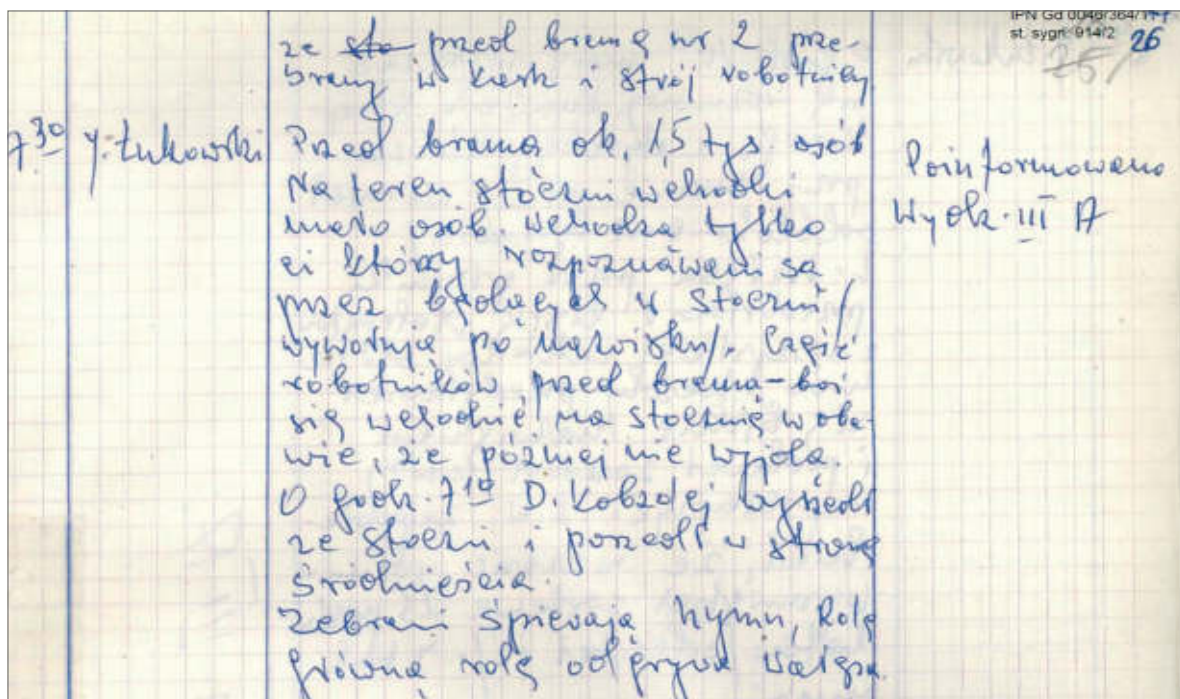 IPN Gd 0046/364/177
st. sygn. 914/2 26
25/
ze sto przed bramą nr 2 prze-
brany w kask i strój robotniczy
7³⁰ J. Łukowski Przed brama ok. 1,5 tys. osób Poinformowano
Na teren stoczni wchodzi Wydz. III A
mało osób. Wchodzą tylko
ci którzy rozpoznawani sa
przez będących w stoczni /
wywołują po nazwisku/. Część
robotników przed brama - boi
się wchodzić na stocznię w oba-
wie, że później nie wyjdą.
O godz. 7¹⁰ D. Kobzdej wyszedł
ze stoczni i poszedł w stronę
śródmieścia.
Zebrani śpiewają hymn, Rolę
główną rolę odgrywa Wałęsa